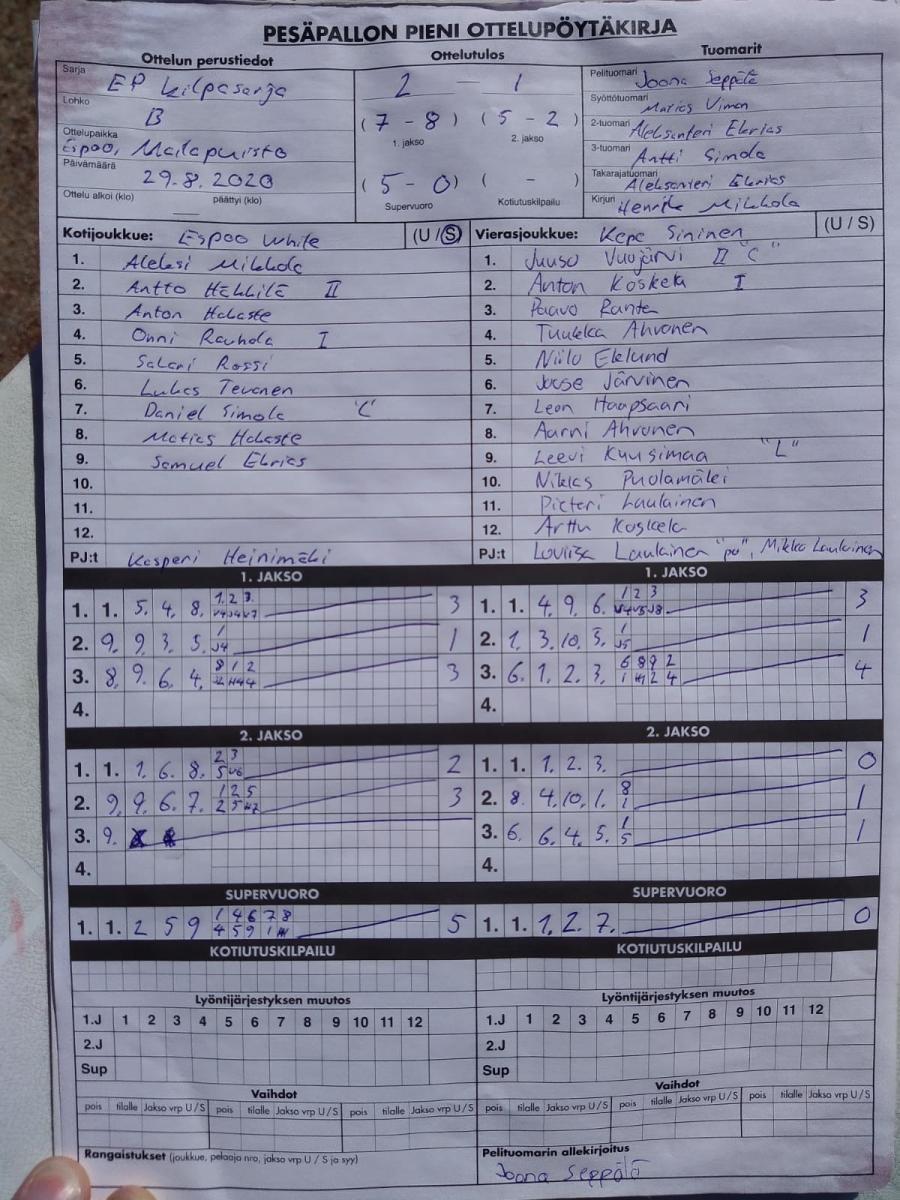 PESÄPALLON PIENI OTTELUPÖYTÄKIRJA
Ottelun perustiedot
Sarja EP Kilpasarja
Lohko B
Ottelupaikka Espoo, Mailapuisto
Päivämäärä 29.8.2020
Ottelu alkoi (klo) päättyi (klo)
Ottelutulos
2 — 1
(7 - 8) (5 - 2)
1. jakso 2. jakso
(5 - 0) ( - )
Supervuoro Kotiutuskilpailu
Tuomarit
Pelituomari Joona Seppälä
Syöttötuomari Matias Viman
2-tuomari Aleksanteri Ekrias
3-tuomari Antti Simola
Takarajatuomari Aleksanteri Ekrias
Kirjuri Henrik Mikkola
Kotijoukkue: Espoo White (U / S)
1. Aleksi Mikkola
2. Antto Häkkilä II
3. Anton Hakaste
4. Onni Rauhala I
5. Sakari Rossi
6. Lukas Tevanen
7. Daniel Simola "C"
8. Matias Hakaste
9. Samuel Ekrias
10.
11.
12.
PJ:t Kasperi Heinimäki
Vierasjoukkue: Kepe Sininen (U / S)
1. Juuso Vuojärvi II "C"
2. Anton Koskela I
3. Paavo Ranta
4. Tuukka Ahvonen
5. Niilo Eklund
6. Joose Järvinen
7. Leon Haapsaari
8. Aarni Ahvonen
9. Leevi Kuusimaa "L"
10. Niklas Puolamäki
11. Pieteri Laulainen
12. Arttu Koskela
PJ:t Loviisa Laulainen "po", Mikko Laulainen
1. JAKSO
1. 1. 5. 4. 8. 1. 2. 3. 3
2. 9. 9. 3. 5. 1 J4 1
3. 8. 9. 6. 4. 8 1 2 3
4.
1. JAKSO
1. 1. 4. 9. 6. 1 2 3 3
2. 1. 3. 10. 5. 1 J5 1
3. 6. 1. 2. 3. 6 8 9 2 4
4.
2. JAKSO
1. 1. 1. 6. 8. 2 3 2
2. 9. 9. 6. 7. 1 2 5 3
3. 9.
4.
2. JAKSO
1. 1. 1. 2. 3. 0
2. 8. 4. 10. 1. 8 1 1
3. 6. 6. 4. 5. 1 5 1
4.
SUPERVUORO
1. 1. 2 5 9 1 4 6 7 8 5
SUPERVUORO
1. 1. 1. 2. 7. 0
KOTIUTUSKILPAILU
KOTIUTUSKILPAILU
Lyöntijärjestyksen muutos
1.J 1 2 3 4 5 6 7 8 9 10 11 12
2.J
Sup
Lyöntijärjestyksen muutos
1.J 1 2 3 4 5 6 7 8 9 10 11 12
2.J
Sup
Vaihdot
pois tilalle Jakso vrp U/S pois tilalle Jakso vrp U/S pois tilalle Jakso vrp U/S
Vaihdot
pois tilalle Jakso vrp U/S pois tilalle Jakso vrp U/S pois tilalle Jakso vrp U/S
Rangaistukset (joukkue, pelaaja nro, jakso vrp U / S ja syy)
Pelituomarin allekirjoitus
Joona Seppälä